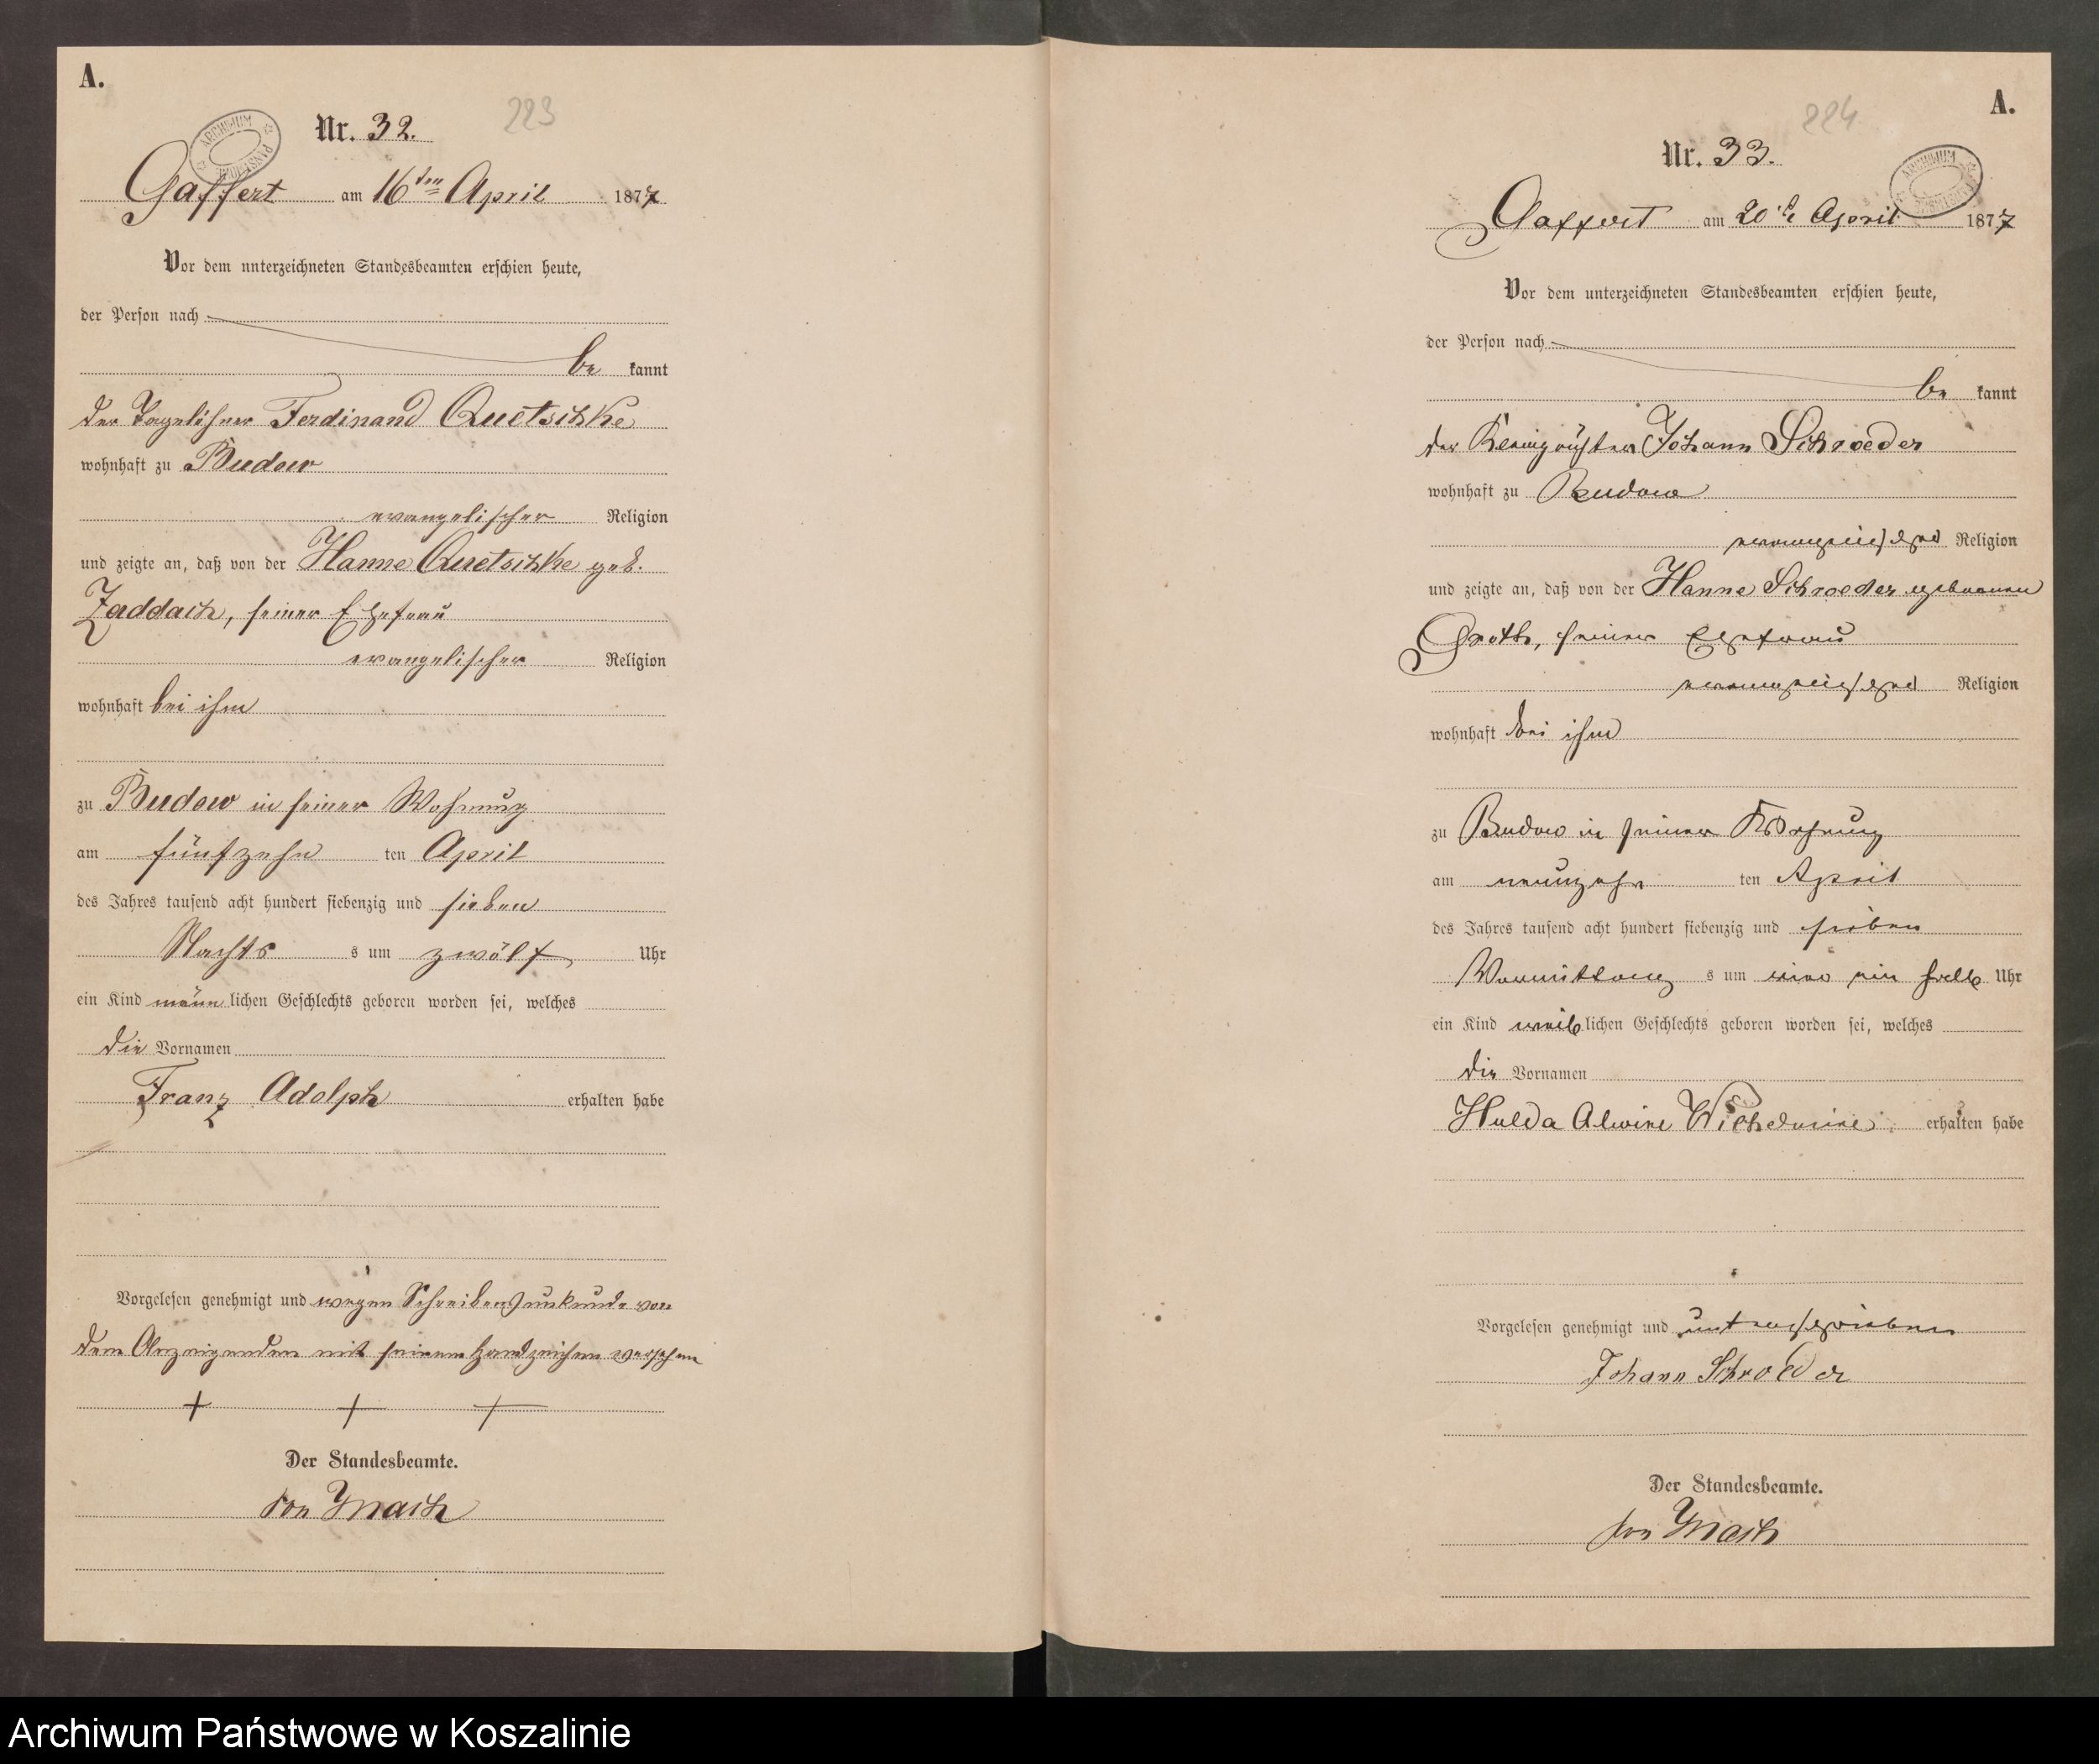 A.
223
Nr. 32.
ARCHIWUM PAŃSTWOWE
Gaffert am 16ten April 1877
Vor dem unterzeichneten Standesbeamten erschien heute,
der Person nach
be kannt
der Tagelöhner Ferdinand Quetschke
wohnhaft zu Budow
evangelischer Religion
und zeigte an, daß von der Hanne Quetschke geb.
Zaddach, seiner Ehefrau
evangelischer Religion
wohnhaft bei ihm
zu Budow in seiner Wohnung
am fünfzehn ten April
des Jahres tausend acht hundert siebenzig und sieben
Nachts s um zwölf Uhr
ein Kind männ lichen Geschlechts geboren worden sei, welches
die Vornamen
Franz Adolph erhalten habe
Vorgelesen genehmigt und wegen Schreibensunkunde von
dem Anzeigenden mit seinem Handzeichen versehen
+ + +
Der Standesbeamte.
von Mach
A.
224
Nr. 33.
ARCHIWUM
Gaffert am 20ten April 1877
Vor dem unterzeichneten Standesbeamten erschien heute,
der Person nach
be kannt
der Johann Schroeder
wohnhaft zu Budow
evangelischer Religion
und zeigte an, daß von der Hanne Schroeder geborenen
Groth, seiner Ehefrau
evangelischer Religion
wohnhaft bei ihm
zu Budow in seiner Wohnung
am neunzehn ten April
des Jahres tausend acht hundert siebenzig und sieben
Vormittag s um ein halb Uhr
ein Kind weib lichen Geschlechts geboren worden sei, welches
die Vornamen
Hulda Alwine Wilhelmine erhalten habe
Vorgelesen genehmigt und unterschrieben
Johann Schroeder
Der Standesbeamte.
von Mach
Archiwum Państwowe w Koszalinie